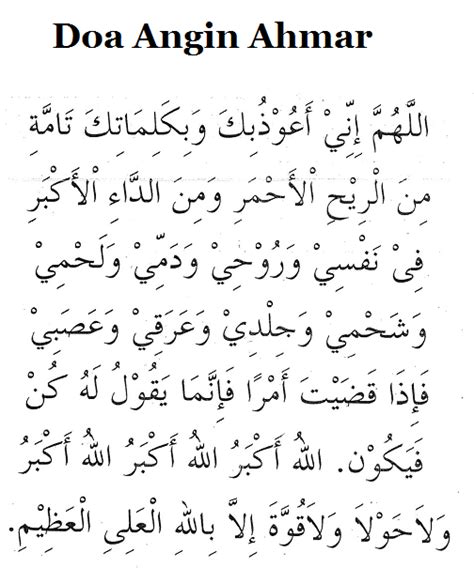 Doa Angin Ahmar
اللَّهُمَّ إِنِّيْ أَعُوْذُبِكَ وَبِكَلِمَاتِكَ تَامَّةِ
مِنَ الْرِيْحِ اْلأَحْمَرِ وَمِنَ الدَّاءِ اْلأَكْبَرِ
فِىْ نَفْسِيْ وَرُوْحِيْ وَدَمِّيْ وَلَحْمِيْ
وَشَحْمِيْ وَجِلْدِيْ وَعَرَقِيْ وَعَصَبِيْ
فَإِذَا قَضَيْتَ أَمْرًا فَإِنَّمَا يَقُوْلُ لَهُ كُنْ
فَيَكُوْن. اللهُ أَكْبَرُ اللهُ أَكْبَرُ اللهُ أَكْبَرُ
وَلاَحَوْلاَ وَلاَقُوَّةَ إِلاَّ بِاللهِ الْعَلِىِ الْعَظِيْمِ.